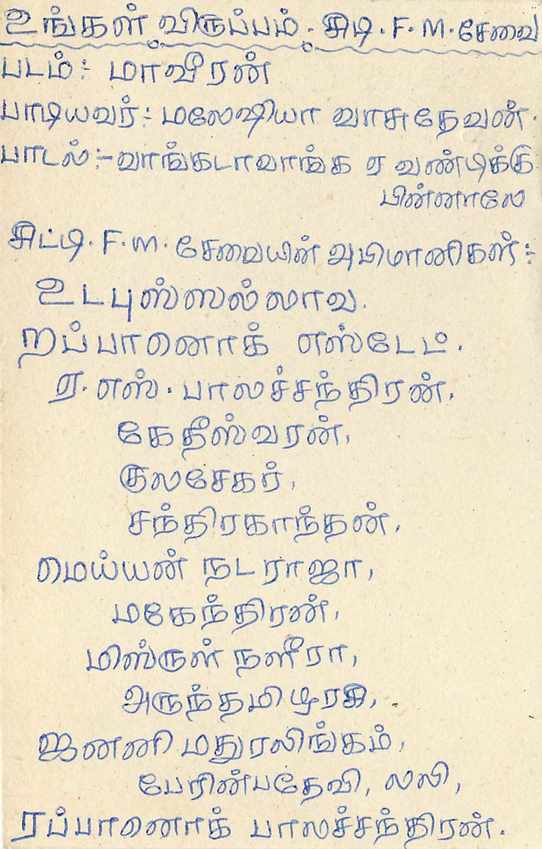 உங்கள் விருப்பம். சிடி.F.M.சேவை
படம்:- மாவீரன்
பாடியவர்:- மலேஷியா வாசுதேவன்.
பாடல்:- வாங்கடாவாங்க ஏ வண்டிக்கு
பின்னாலே
சிட்டி.F.M.சேவையின் அபிமானிகள்:-
உடபுஸ்ஸல்லாவ.
றப்பானொக் எஸ்டேட்.
ஏ.எஸ்.பாலச்சந்திரன்,
கேதீஸ்வரன்,
குலசேகர்,
சந்திரகாந்தன்,
மெய்யன் நடராஜா,
மகேந்திரன்,
மிஸ்ருள் நளீரா,
அருந்தமிழரசி,
ஜனனி மதுரலிங்கம்,
பேரின்பதேவி, லலி,
ரப்பானொக் பாலச்சந்திரன்.